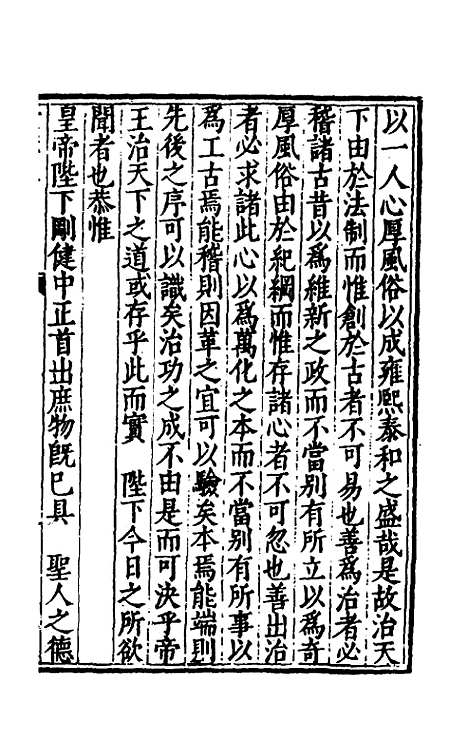 以一人心厚風俗以成雍熙泰和之盛哉是故治天
下由於法制而惟創於古者不可易也善為治者必
稽諸古昔以為維新之政而不當别有所立以為奇
厚風俗由於紀綱而惟存諸心者不可忽也善出治
者必求諸此心以為萬化之本而不當别有所事以
為工古焉能稽則因革之宜可以驗矣本焉能端則
先後之序可以識矣治功之成不由是而可決乎帝
王治天下之道或存乎此而實 陛下今日之所欲
聞者也恭惟
皇帝陛下剛健中正首出庶物既已具 聖人之德